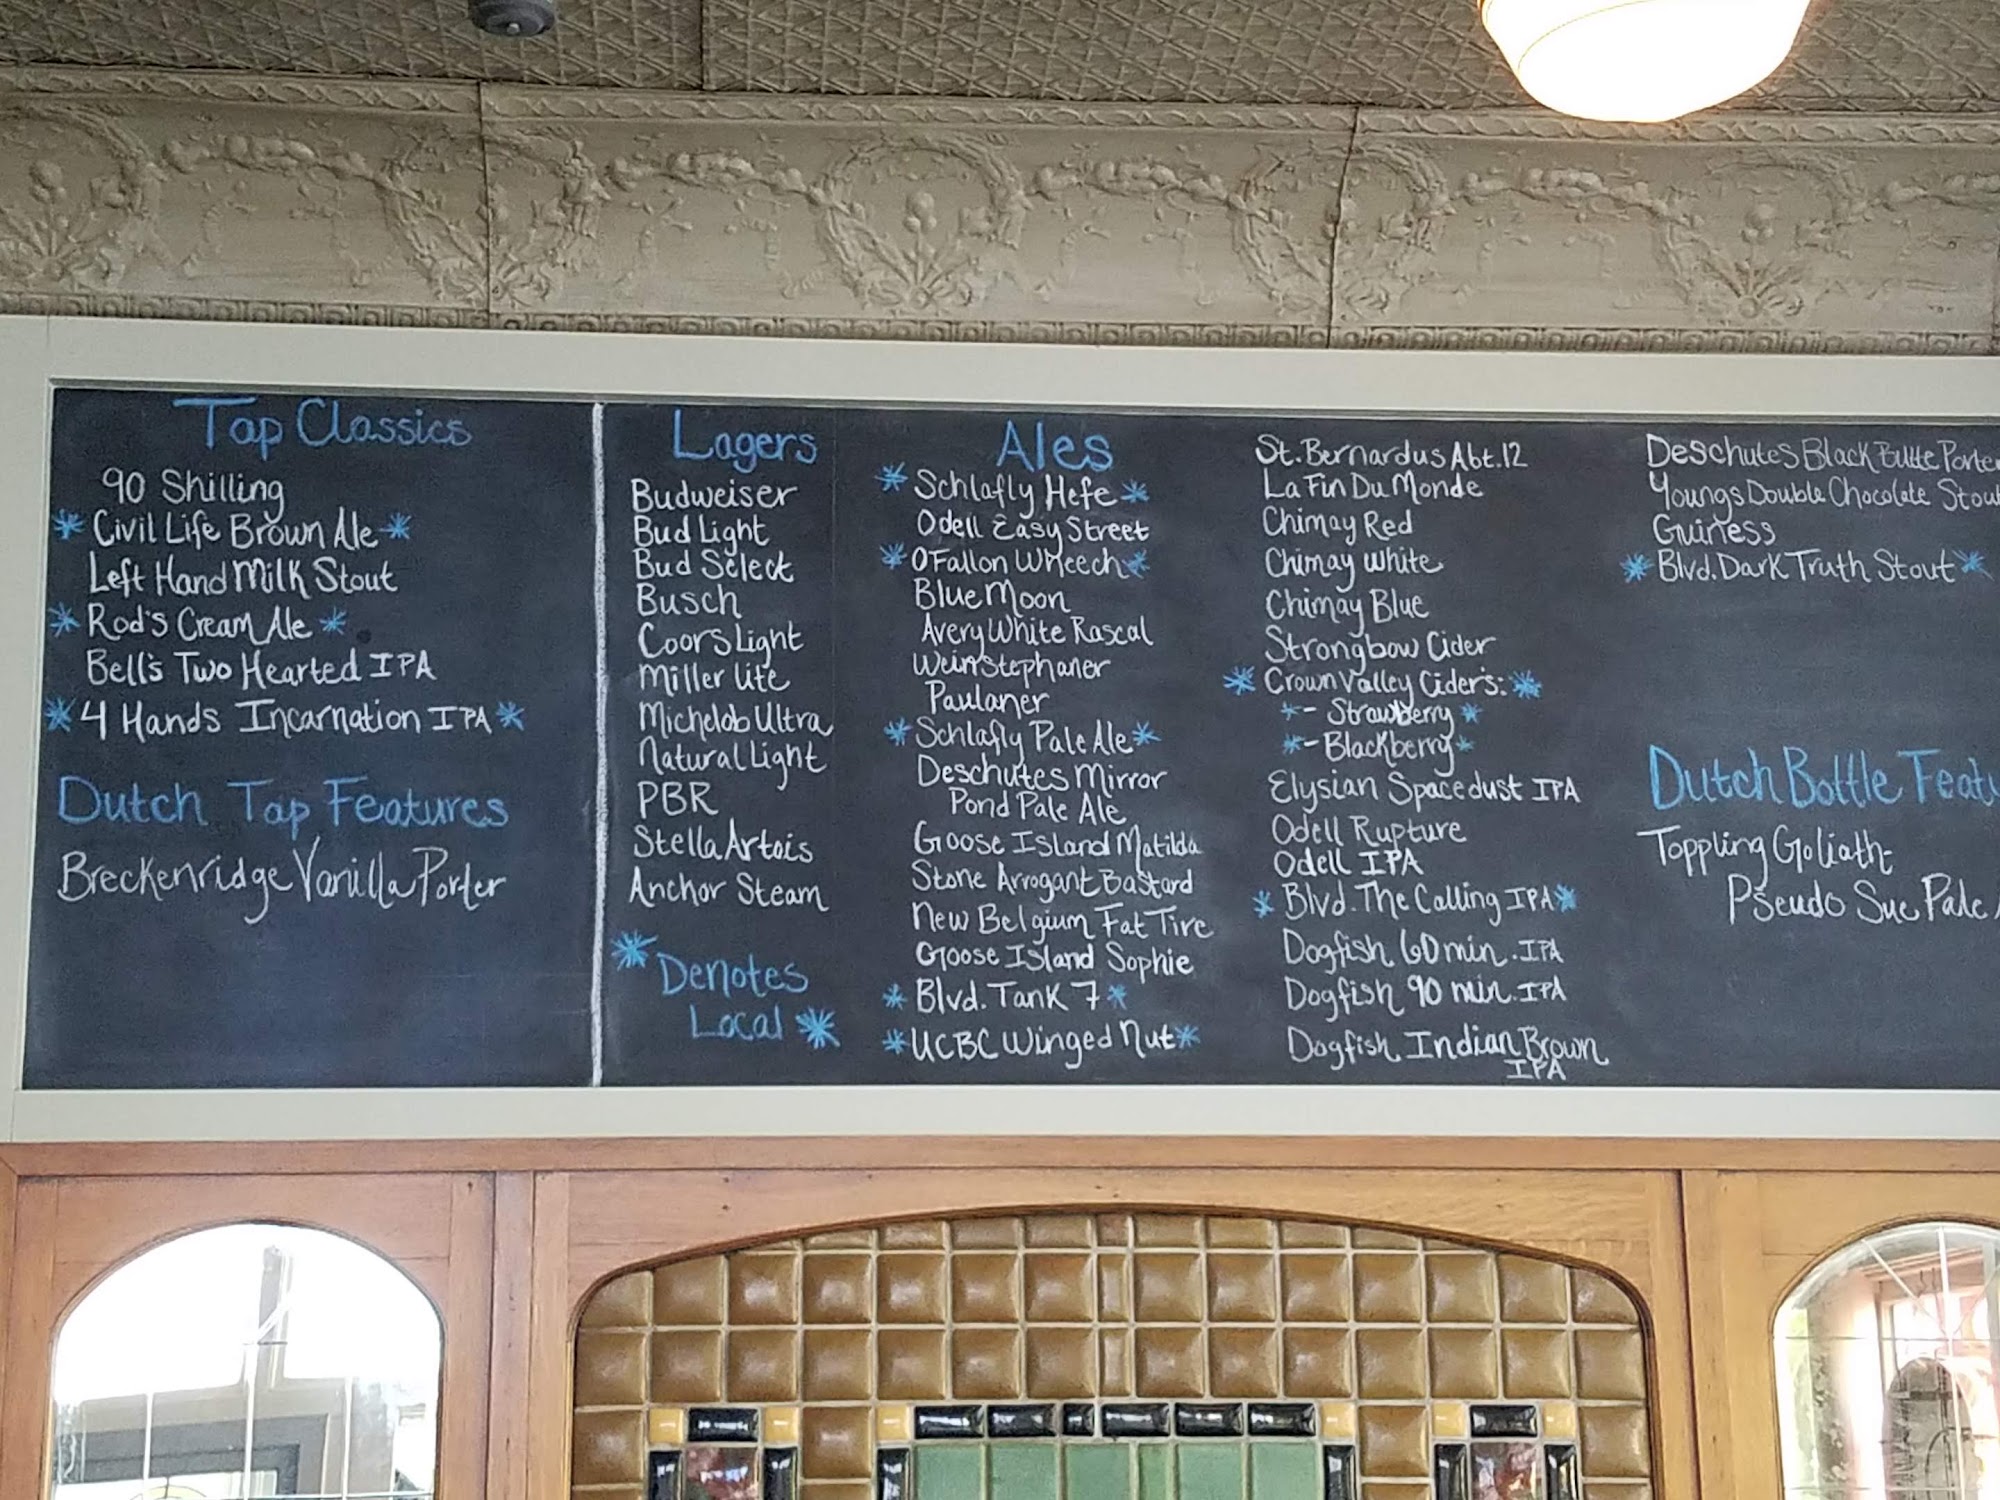 Tap Classics
90 Shilling
* Civil Life Brown Ale *
Left Hand Milk Stout
* Rod's Cream Ale *
Bell's Two Hearted IPA
* 4 Hands Incarnation IPA *
Dutch Tap Features
Breckenridge Vanilla Porter
Lagers
Budweiser
Bud Light
Bud Select
Busch
Coors Light
Miller Lite
Michelob Ultra
Natural Light
PBR
Stella Artois
Anchor Steam
* Denotes
Local *
Ales
* Schlafly Hefe *
Odell Easy Street
* O'Fallon Wheech *
Blue Moon
Avery White Rascal
Weinstephaner
Paulaner
* Schlafly Pale Ale *
Deschutes Mirror
Pond Pale Ale
Goose Island Matilda
Stone Arrogant Bastard
New Belgium Fat Tire
Goose Island Sophie
* Blvd. Tank 7 *
* UCBC Winged Nut *
St. Bernardus Abt. 12
La Fin Du Monde
Chimay Red
Chimay White
Chimay Blue
Strongbow Cider
* Crown Valley Cider's: *
* - Strawberry *
* - Blackberry *
Elysian Spacedust IPA
Odell Rupture
Odell IPA
* Blvd. The Calling IPA *
Dogfish 60 min. IPA
Dogfish 90 min. IPA
Dogfish Indian Brown
IPA
Deschutes Black Butte Porter
Youngs Double Chocolate Stou
Guiness
* Blvd. Dark Truth Stout *
Dutch Bottle Featu
Toppling Goliath-
Pseudo Sue Pale